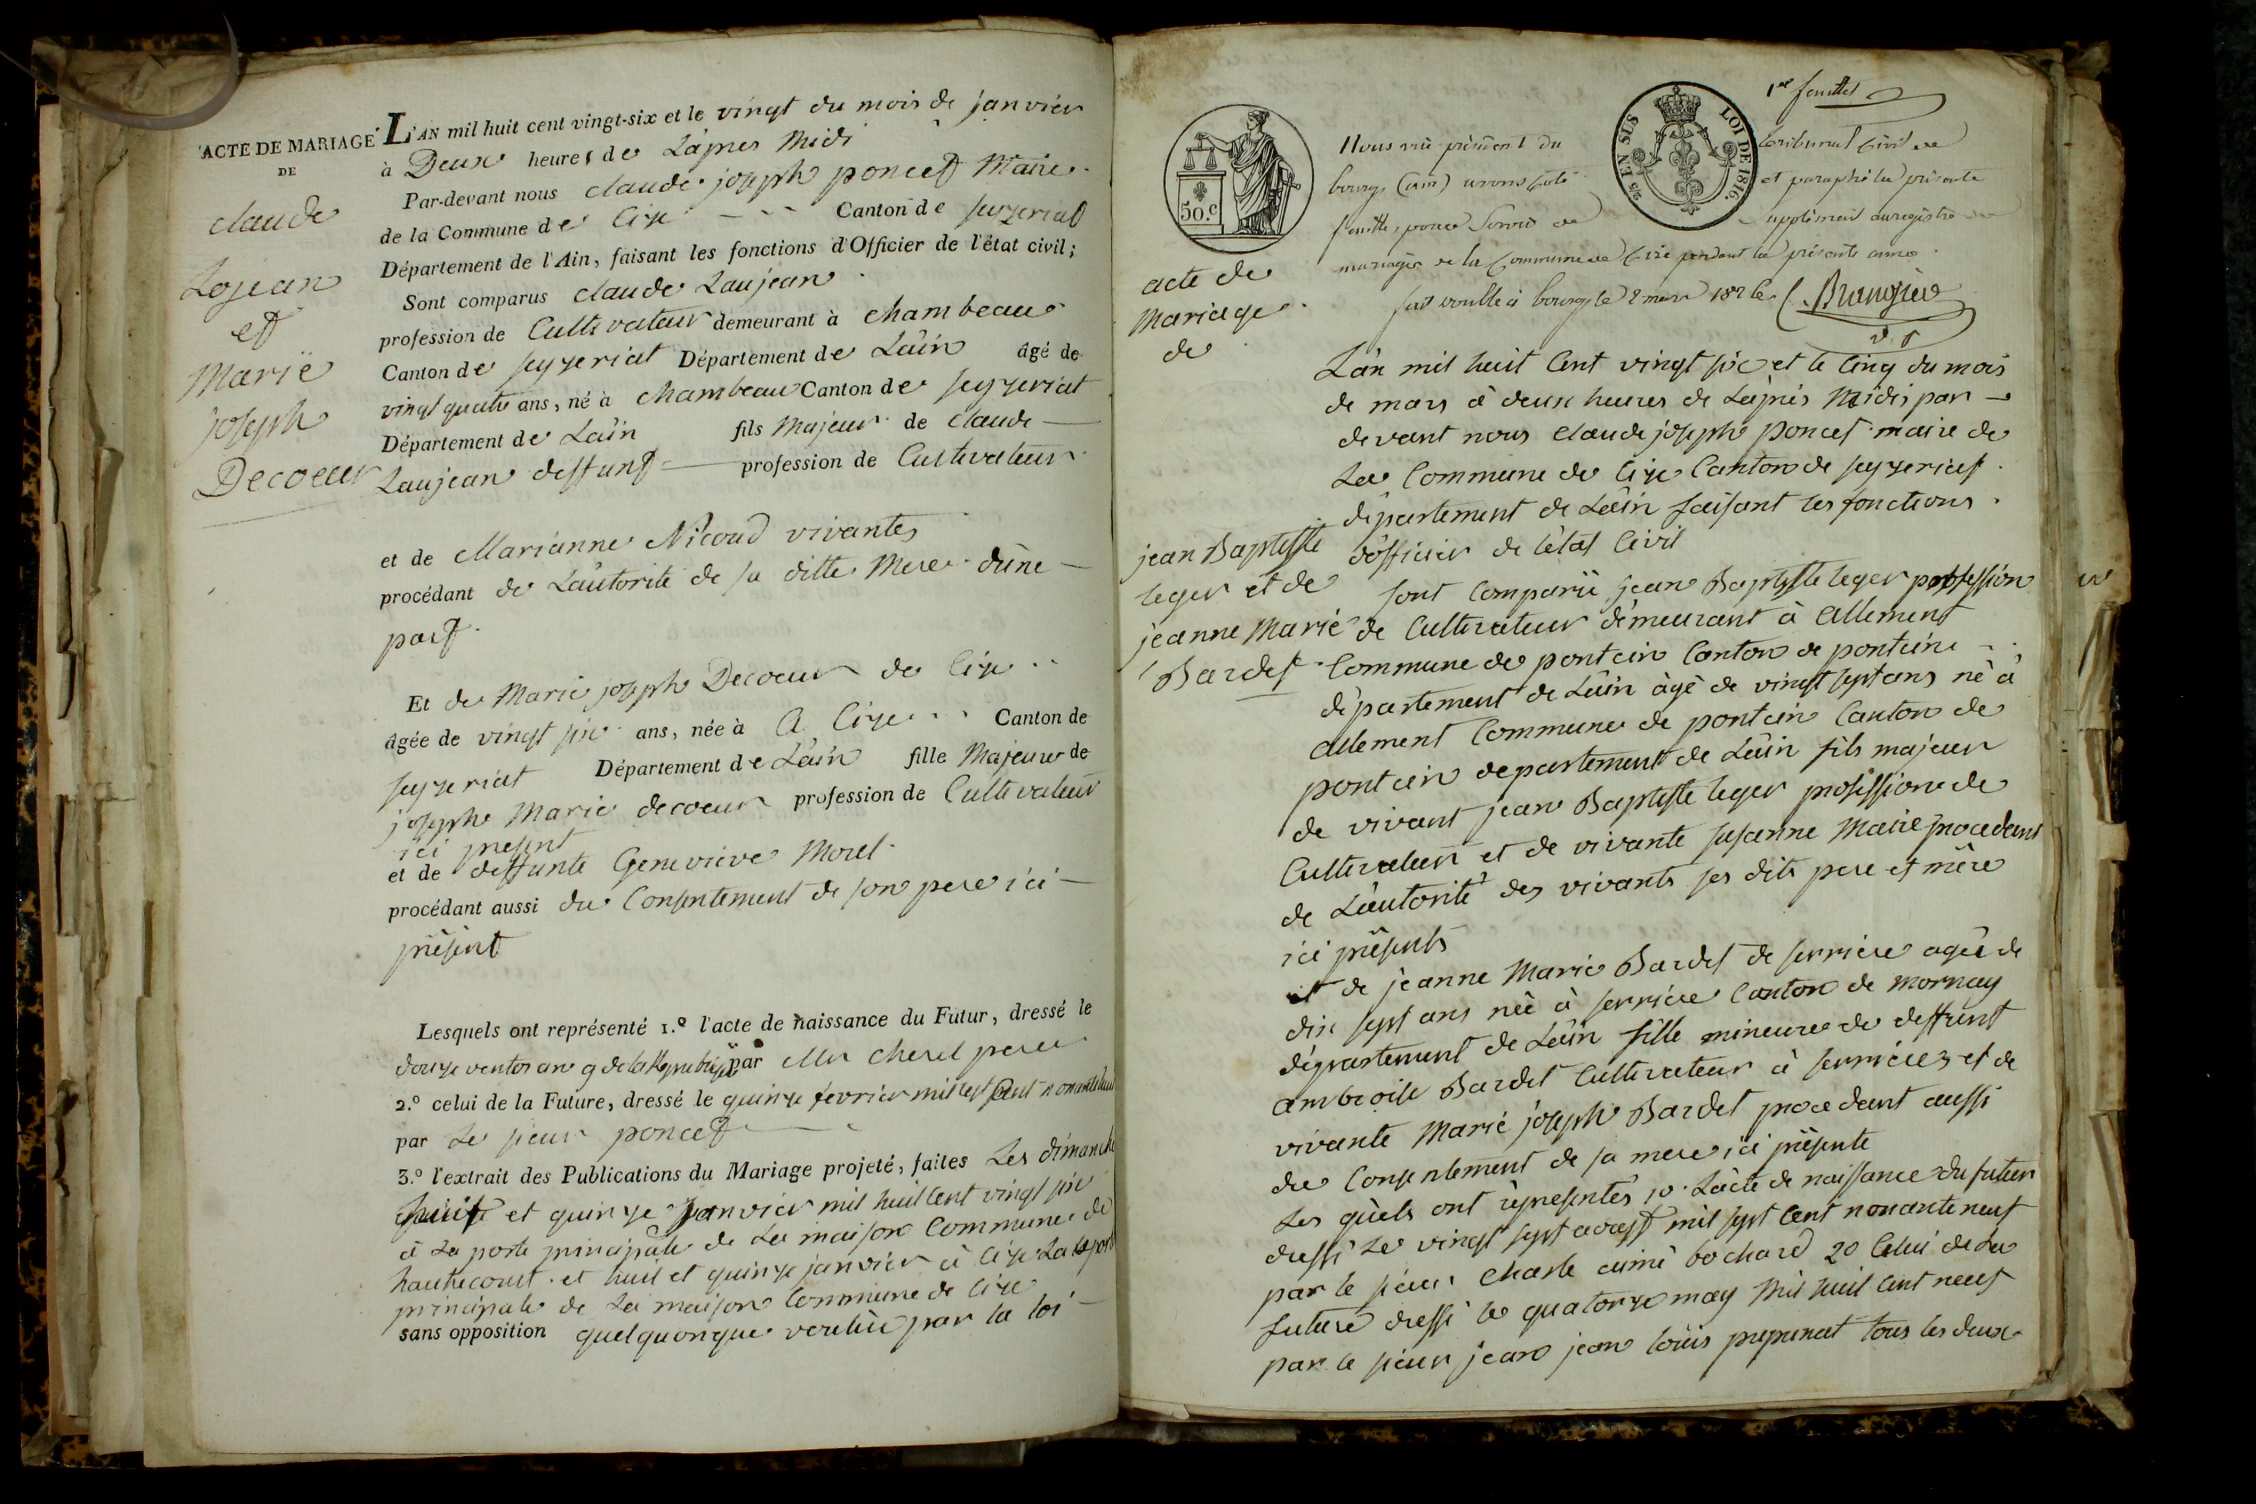 ACTE DE MARIAGE
DE
claude
Lojean
et
Marie
joseph
Decoeur
L'AN mil huit cent vingt-six et le vingt du mois de janvier
à Deux heures de Lapres Midi
Par-devant nous claude joseph poncet Maire
de la Commune de Cize Canton de seyzeriat
Département de l'Ain, faisant les fonctions d'Officier de l'état civil;
Sont comparus claude Laujean
profession de Cultivateur demeurant à chambeau
Canton de seyzeriat Département de Lain âgé de
vingt quatre ans, né à chambeau Canton de seyzeriat
Département de Lain fils Majeur de claude
Laujean deffunt profession de Cultivateur
et de Marianne Nicoud vivantes
procédant de Lautorité de sa ditte Mere dune
part
Et de Marie joseph Decoeur de Cize
âgée de vingt six ans, née à A Cize Canton de
seyzeriat Département de Lain fille Majeure de
joseph Marie decoeur profession de Cultivateur
ici present
et de deffunte Genevieve Morel
procédant aussi du Consentement de son pere ici
présent
Lesquels ont représenté 1.º l'acte de naissance du Futur, dressé le
douze ventos an 9 de la Republique par
2.º celui de la Future, dressé le quinze fevrier mil sept Cent nonante
par Le sieur poncet
3.º l'extrait des Publications du Mariage projeté, faites Les dimanche
huit et quinze Janvier mil huit Cent vingt six
à La porte principale de La maison Commune de
hautecourt et huit et quinze janvier à Cize La porte
principale de La maison Commune de Cize
sans opposition quelquonque voulue par la loi
50.c
EN SUS
LOI DE 1816.
1er feuillet
Nous président du tribunal Civil de
bourg (ain) avons coté et paraphé la présente
feuille, pour Servir de supplément au registre de
mariages de la Commune de Cize pendant la présente année
fait double à bourg le 2 mars 1826
acte de
Mariage
de
jean Baptiste
leger et de
jeanne Marie
Bardet
L'an mil huit Cent vingt six et le Cinq du mois
de mars à deux heures de Laprès Midi par
devant nous Claude joseph poncet maire de
La Commune de Cize Canton de seyzeriat
département de Lain faisant les fonctions
dofficier de létat Civil
sont Comparu jean Baptiste leger profession
de Cultivateur démeurant à Allement
Commune de pontein Canton de pontein
département de Lain agé de vingt sept ans né à
allement Commune de pontein Canton de
pontein departement de Lain fils majeur
de vivant jean Baptiste leger profession de
Cultivateur et de vivante susanne Maire procedant
de Lautorité des vivants ses dits pere et mère
ici présents
et de jeanne Marie Bardet de serriere agée de
dix sept ans née à serriere Canton de mornay
département de Lain fille mineure de deffunt
ambroise Bardet Cultivateur à serrieres et de
vivante Marie joseph Bardet procedant aussi
du Consentement de sa mere ici présente
Les quels ont représentés 1º Lacte de naissance du futur
dressé Le vingt sept mil sept Cent nonante neuf
par le sieur Charle aimé bochard 2º Celui de La
future dressé le quatorze may Mil huit Cent neuf
par le sieur jean jean louis tous les deux